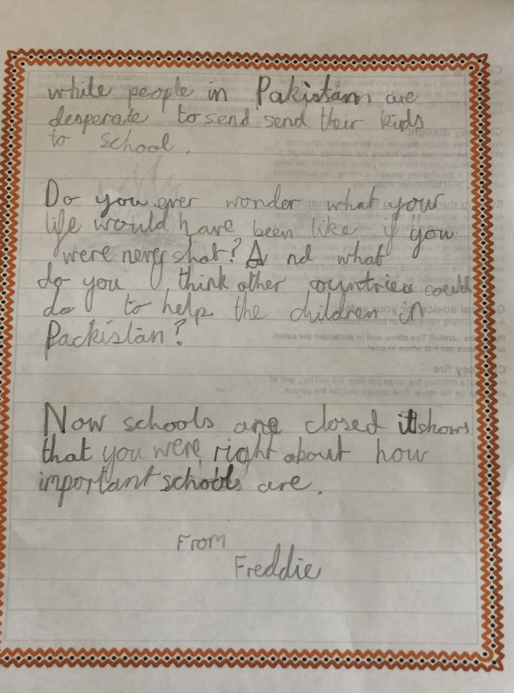 while people in Pakistan are
desperate to send send their kids
to school.
Do you ever wonder what your
life would have been like if you
were never shot? A nd what
do you think other countries could
do to help the children in
Packistan?
Now schools are closed it shows
that you were right about how
important schools are.
From
Freddie